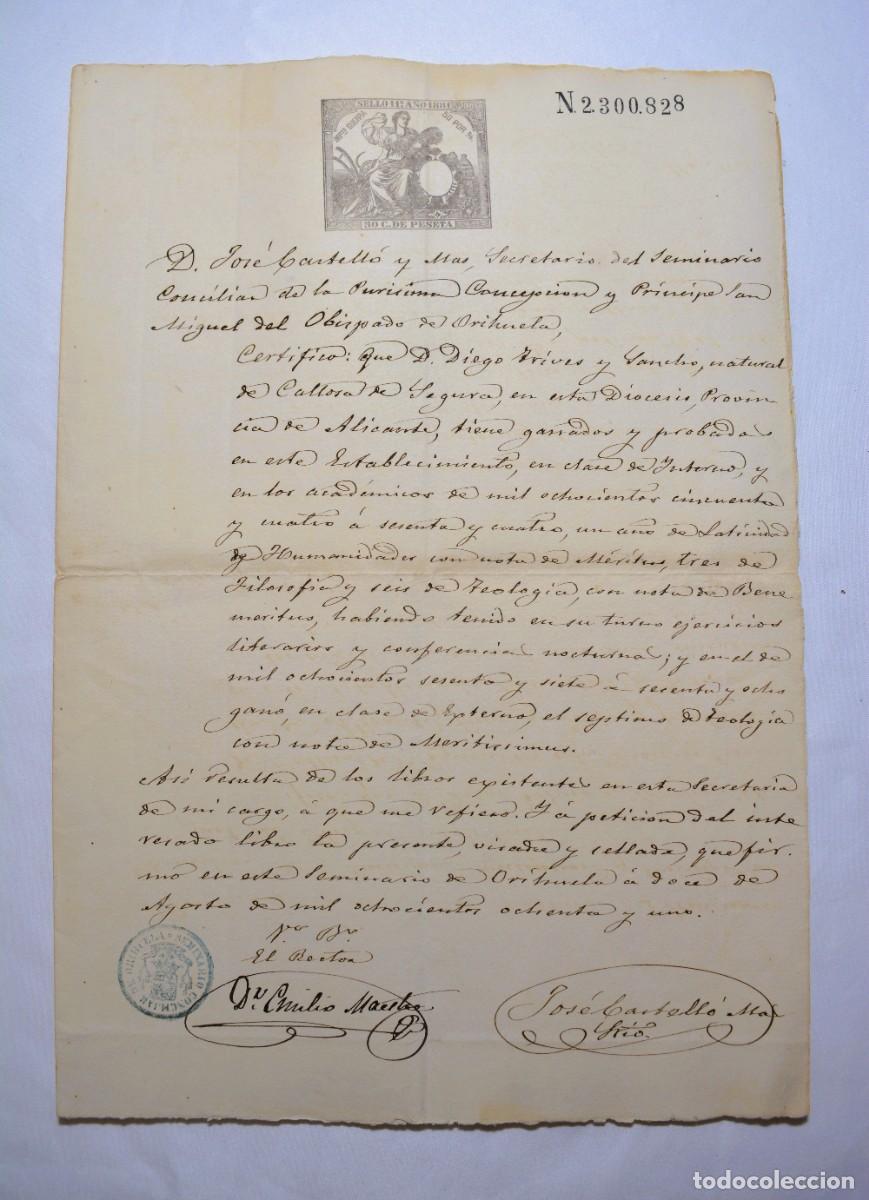 SELLO 11º AÑO 1881
50 POR %
50 C. DE PESETA
N.2.300.828
D. José Castelló y Mas, Secretario del Seminario
Conciliar de la Purisima Concepcion y Príncipe San
Miguel del Obispado de Orihuela,
Certifico: Que D. Diego Trives y Sancho, natural
de Callosa de Segura, en esta Diocesis, Provin-
cia de Alicante, tiene ganados y probados
en este Establecimiento, en clase de Interno, y
en los académicos de mil ochocientos cincuenta
y cuatro á sesenta y cuatro, un año de Latinidad
y Humanidades con nota de Méritus, tres de
Filosofía y seis de Teología, con nota de Bene
meritus, habiendo tenido en su turno ejercicios
literarios y conferencias nocturnas; y en el de
mil ochocientos sesenta y siete á sesenta y ocho
ganó, en clase de Externo, el septimo de Teología
con nota de Meritissimus.
Asi resulta de los libros existentes en esta Secretaria
de mi cargo, á que me refiero. Y á peticion del inte
resado libro la presente, visada y sellada, que fir-
mo en este Seminario de Orihuela á doce de
Agosto de mil ochocientos ochenta y uno.
Vº Bº
El Rector
Dr. Emilio Maestre
José Castelló Mas
Srio.
SEMINARIO CONCILIAR DE ORIHUELA
todocoleccion